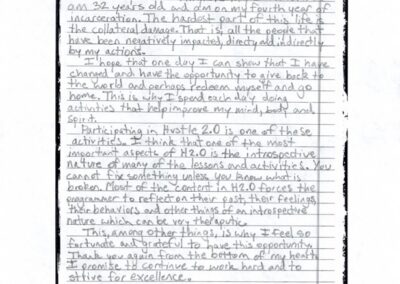 am 32 years old and am on my fourth year of
incarceration. The hardest part of this life is
the collateral damage. That is, all the people that
have been negatively impacted, directly and indirectly
by my actions.
I hope that one day I can show that I have
changed and have the opportunity to give back to
the world and perhaps redeem myself and go
home. This is why I spend each day doing
activities that help improve my mind, body and
spirit.
Participating in Hustle 2.0 is one of these
activities. I think that one of the most
important aspects of H2.0 is the introspective
nature of many of the lessons and activities. You
cannot fix something unless you know what is
broken. Most of the content in H2.0 forces the
programmer to reflect on their past, their feelings,
their behaviors and other things of an introspective
nature which can be very theraputic.
This, among other things, is why I feel so
fortunate and grateful to have this opportunity.
Thank you again from the bottom of my heart.
I promise to continue to work hard and to
strive for excellence.